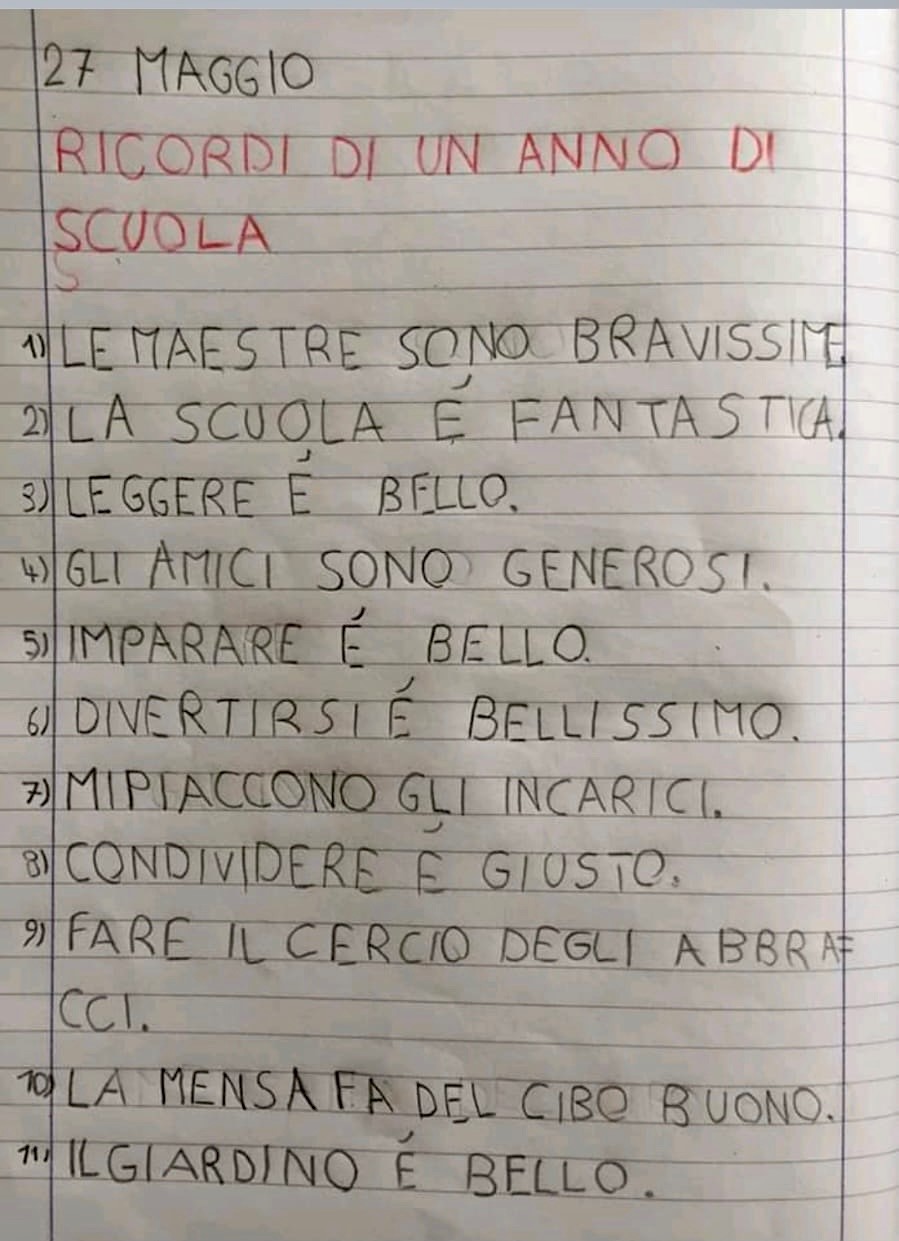 27 MAGGIO
RICORDI DI UN ANNO DI
SCUOLA
S
1) LE MAESTRE SONO BRAVISSIME
2) LA SCUOLA É FANTASTICA.
3) LEGGERE É BELLO.
4) GLI AMICI SONO GENEROSI.
5) IMPARARE É BELLO.
6) DIVERTIRSI É BELLISSIMO.
7) MIPIACCONO GLI INCARICI.
8) CONDIVIDERE É GIUSTO.
9) FARE IL CERCIO DEGLI ABBRA=
CCI.
10) LA MENSA FA DEL CIBO BUONO.
11) IL GIARDINO É BELLO.